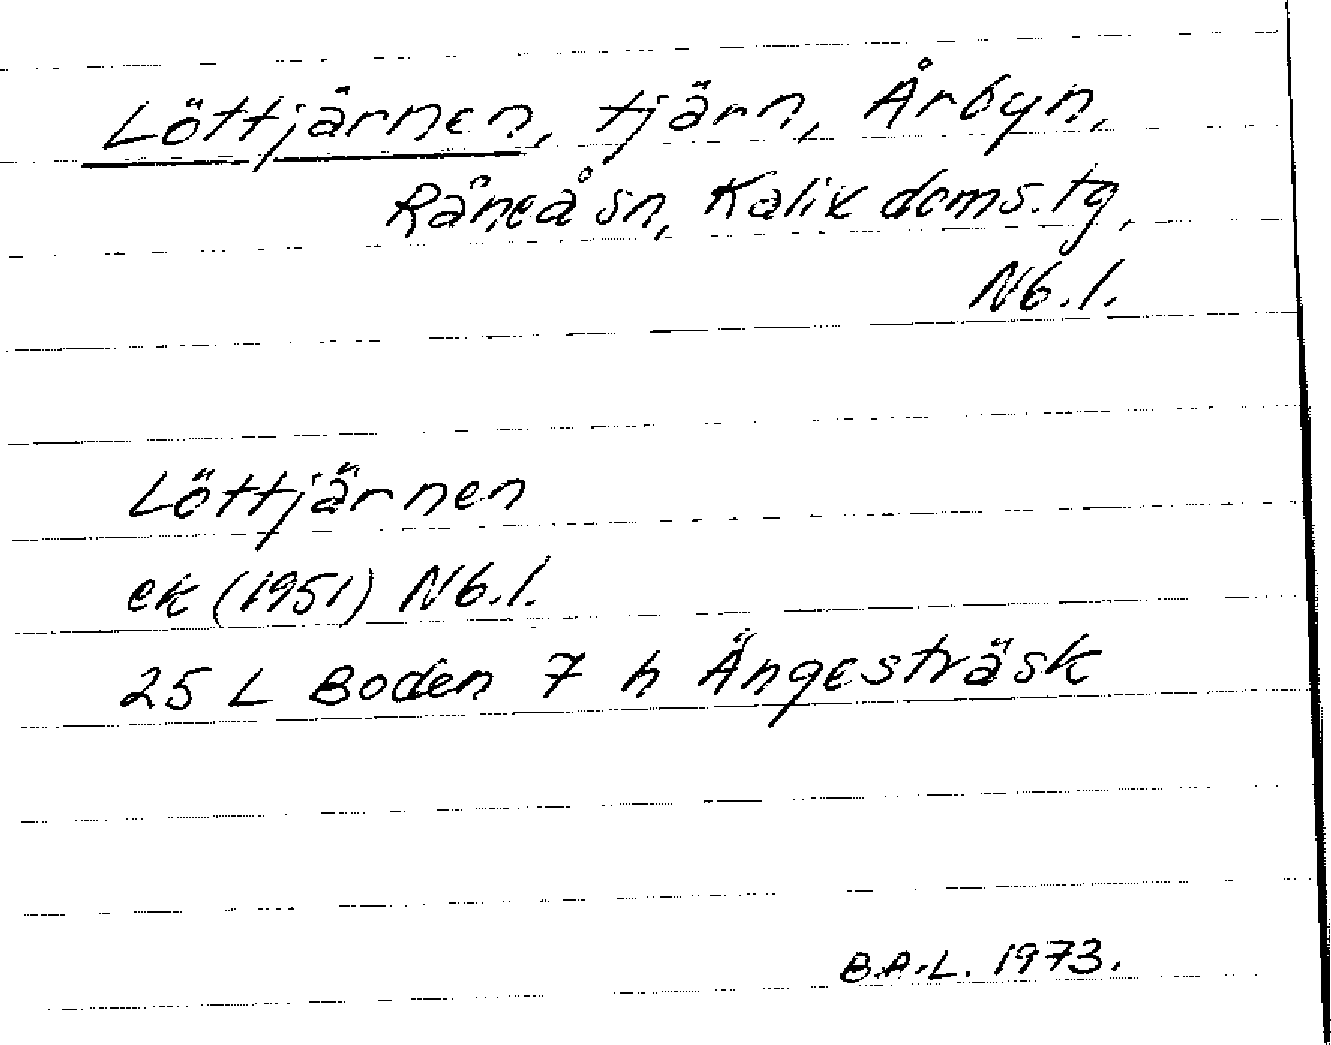 Löttjärnen, tjärn, Årbyn,
Råneå sn, Kalix doms.tg,
Nb.l.
Löttjärnen
ek (1951) Nb.l.
25 L Boden 7 h Ängesträsk
B.A.L. 1973.